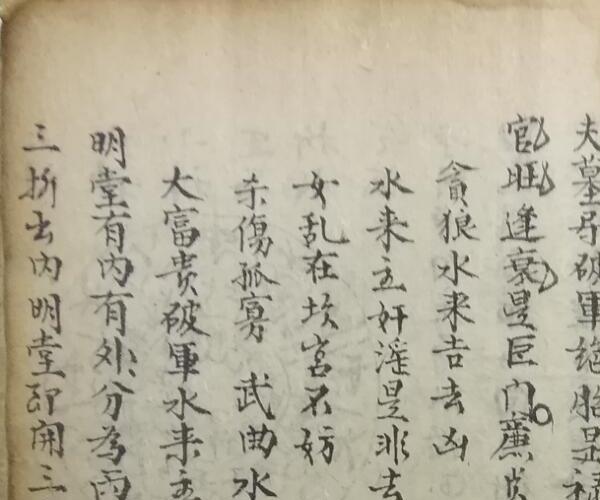 夫墓寻破軍绝胎是禄
官旺逢衰是巨门廉
貪狼水来吉去凶
水来主奸淫是非去
女乱在坎宫不妨
杀傷孤寡 武曲水
大富贵破軍水来主
明堂有内有外分为两
三折出内明堂即開三